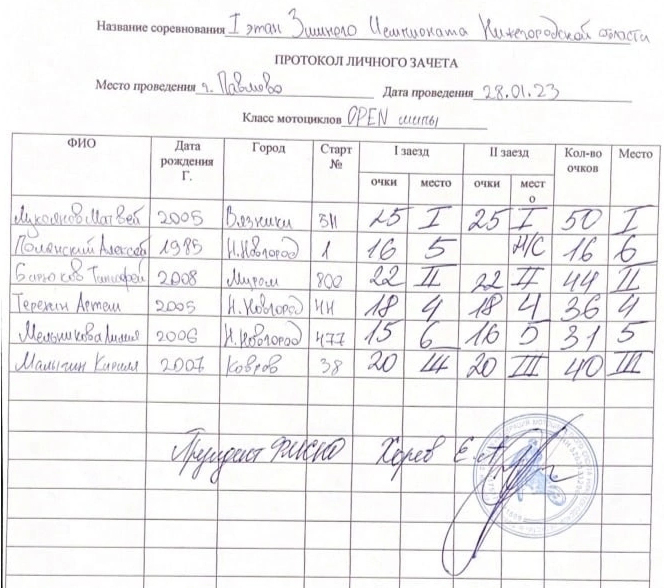 Название соревнования I этап Зимнего Чемпионата Нижегородской области
ПРОТОКОЛ ЛИЧНОГО ЗАЧЕТА
Место проведения г. Павлово Дата проведения 28.01.23
Класс мотоциклов OPEN шипы
ФИО Дата рождения Г. Город Старт № I заезд II заезд Кол-во очков Место
очки место очки место
Матвей 2005 Вязники 311 25 I 25 I 50 I
Полянский Алексей 1985 Н.Новгород 1 16 5 Н/С 16 6
Бирюков Тимофей 2008 Муром 800 22 II 22 II 44 II
Терехин Артем 2005 Н.Новгород 44 18 4 18 4 36 4
Мельникова Лилия 2006 Н.Новгород 477 15 6 16 5 31 5
Малыгин Кирилл 2007 Ковров 38 20 III 20 III 40 III
Президент Хорев Е.А.